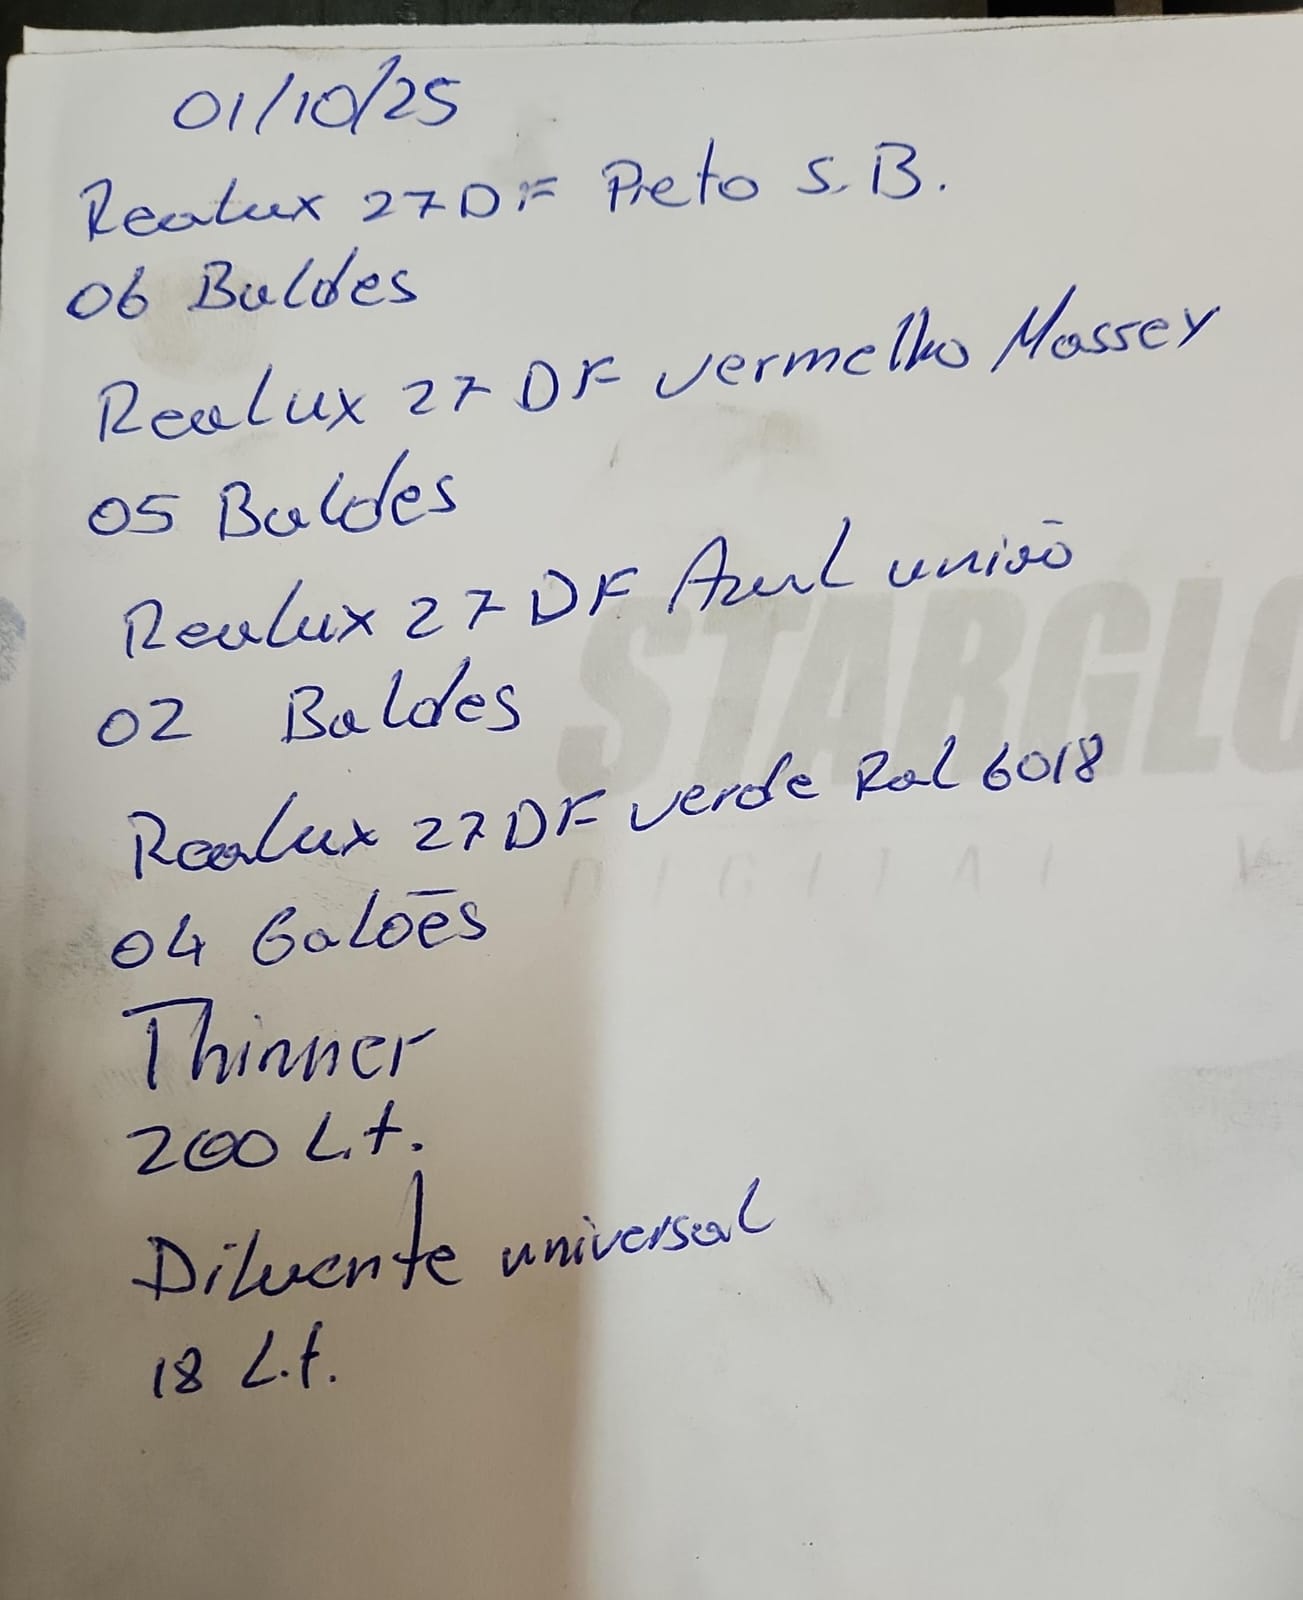 01/10/25
Realux 27 DF Preto S.B.
06 Baldes
Realux 27 DF vermelho Massey
05 Baldes
Realux 27 DF Azul união
02 Baldes
Realux 27 DF verde Ral 6018
04 Galões
Thinner
200 L.t.
Diluente universal
18 L.t.
STARGLO
DIGITAL